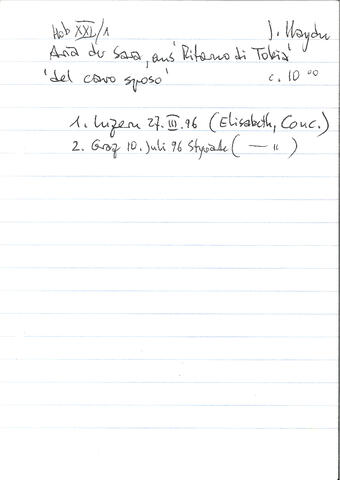 Hob XXI/1 J. Haydn
Aria der Sara, aus 'Ritorno di Tobia'
'del caro sposo' c. 10°°
1. Luzern 27. III. 96 (Elisabeth, Conc.)
2. Graz 10. Juli 96 Styriarte ( — " )